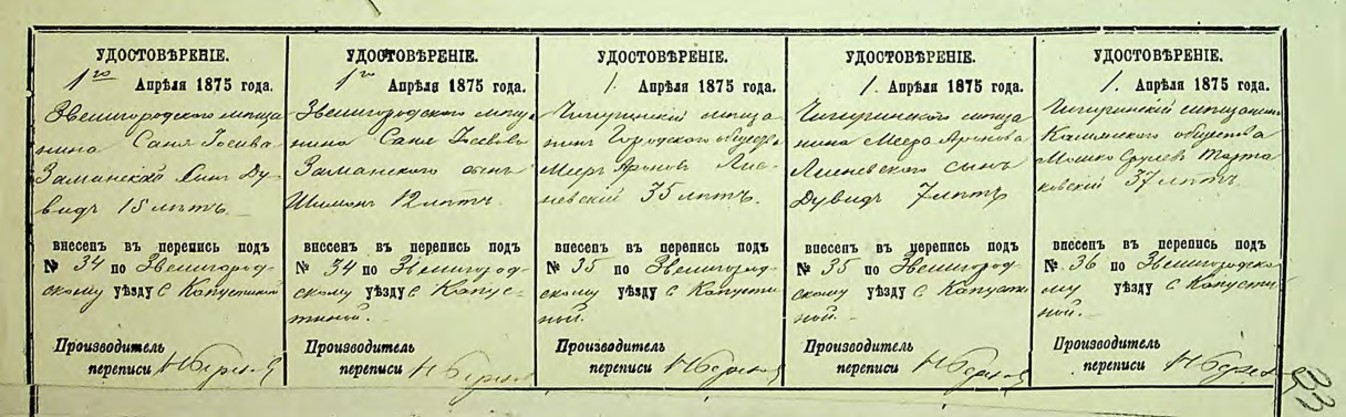 УДОСТОВѢРЕНІЕ.
1го Апрѣля 1875 года.
Звенигородского мѣща
нина Саня Іосива
Заманский Сынъ Ду-
видъ 15 лѣтъ.
внесенъ въ перепись подъ
№ 34 по Звенигород-
скому уѣзду С Капустиной
Производитель
переписи
УДОСТОВѢРЕНІЕ.
1го Апрѣля 1875 года.
Звенигородского мѣща
нина Саня Іосевова
Заманского сынъ
Шимонъ 12 лѣтъ.
внесенъ въ перепись подъ
№ 34 по Звенигород-
скому уѣзду С Капус-
тиной.
Производитель
переписи
УДОСТОВѢРЕНІЕ.
1. Апрѣля 1875 года.
Чигиринскій мѣща
нинъ Городского общества
Мееръ Ароновъ
35 лѣтъ.
внесенъ въ перепись подъ
№ 35 по Звенигород-
скому уѣзду С Капусти
ной.
Производитель
переписи
УДОСТОВѢРЕНІЕ.
1. Апрѣля 1875 года.
Чигиринского мѣща
нина Меера Аронова
сынъ
Дувидъ 7 лѣтъ
внесенъ въ перепись подъ
№ 35 по Звенигород-
скому уѣзду С Капусти
ной.
Производитель
переписи
УДОСТОВѢРЕНІЕ.
1. Апрѣля 1875 года.
Чигиринскій мѣщанинъ
общества
Мошко Срулевъ Тарта
ковский 37 лѣтъ.
внесенъ въ перепись подъ
№ 36 по Звенигородско
му уѣзду С Капусти
ной.
Производитель
переписи